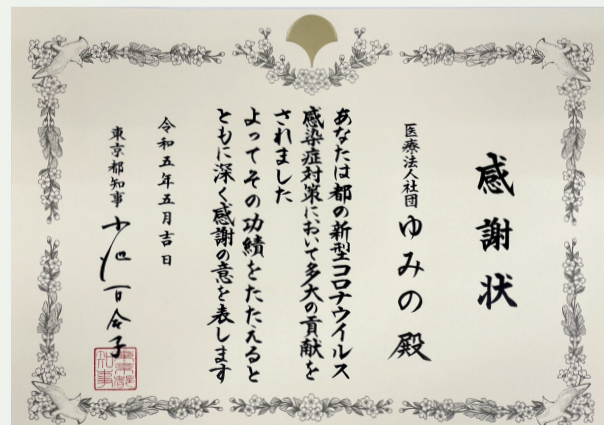 感謝状
医療法人社団 ゆみの 殿
あなたは都の新型コロナウイルス
感染症対策において多大の貢献を
されました
よってその功績をたたえると
ともに深く感謝の意を表します
令和五年五月吉日
東京都知事 小池百合子
東京都知事